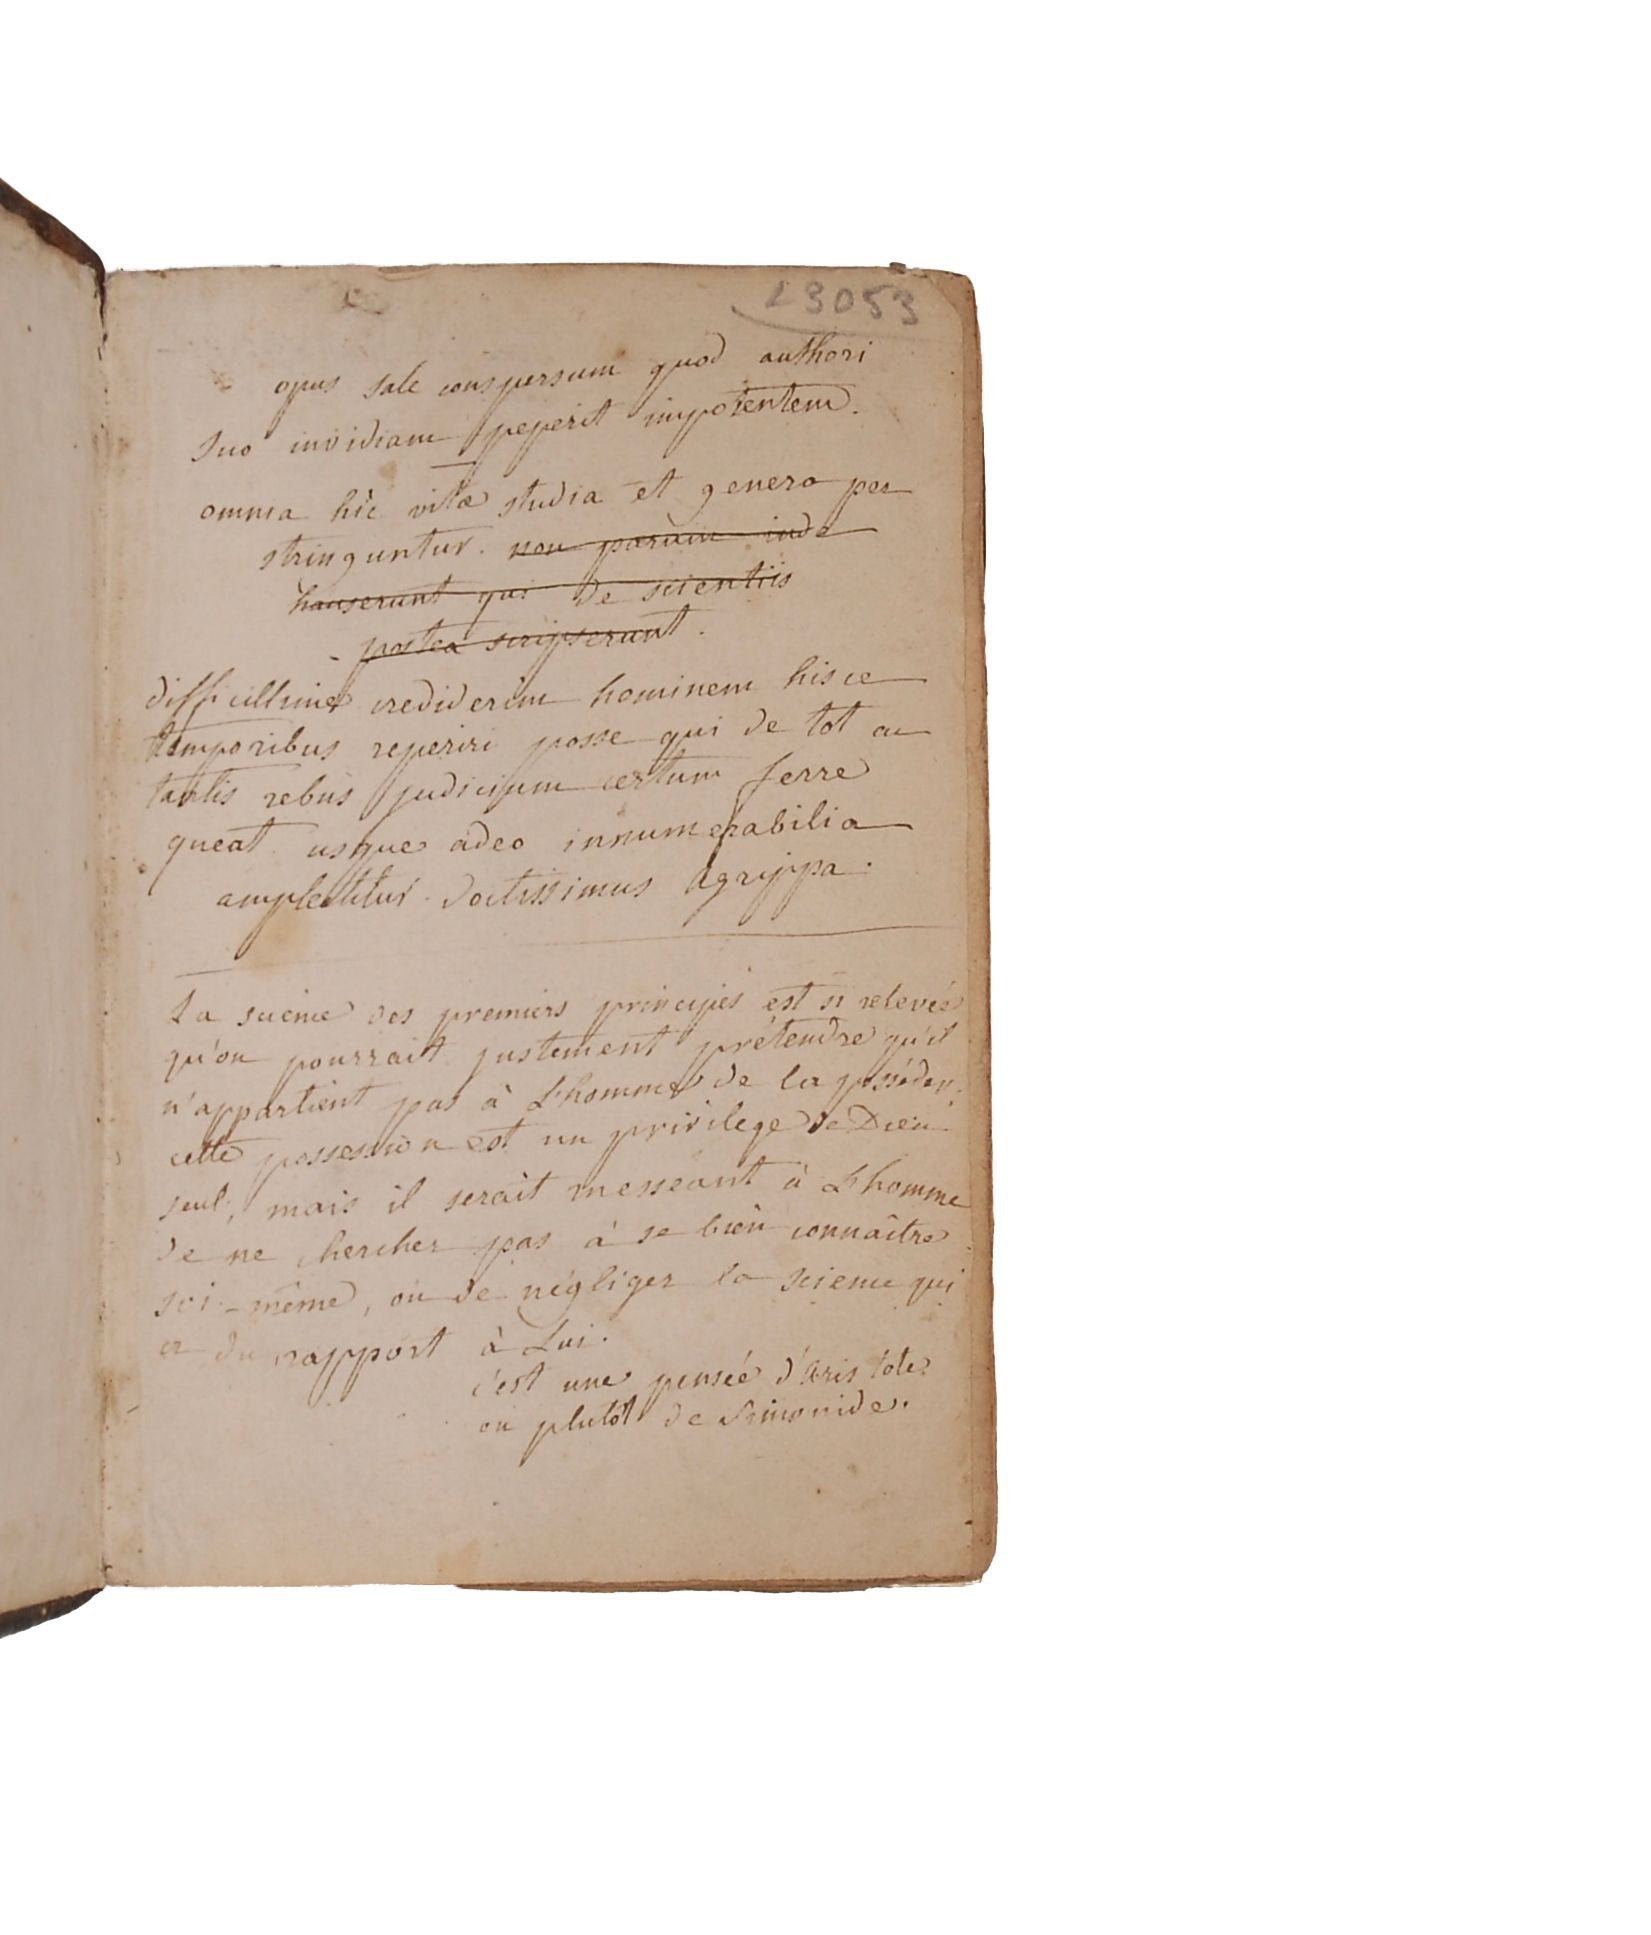 L3053
opus sale conspersum quod authori
suo invidiam peperit impotentem.
omnia hîc vitæ studia et genera per
stringuntur. non parùm inde
hauserunt qui de scientiis
postea scripserunt.
difficillimè crediderim hominem hisce
temporibus reperiri posse qui de tot ac
tantis rebus judicium certum ferre
queat usque adeo innumerabilia
amplectitur doctissimus Agrippa.
La science des premiers principes est si relevée
qu'on pourrait justement prétendre qu'il
n'appartient pas à L'homme de la posséder.
cette possession est un privilege de Dieu
seul, mais il serait messeant à L'homme
de ne chercher pas à se bien connaître
soi-même, ou de négliger la science qui
a du rapport à Lui.
c'est une pensée d'Aristote
ou plutôt de Simonide.